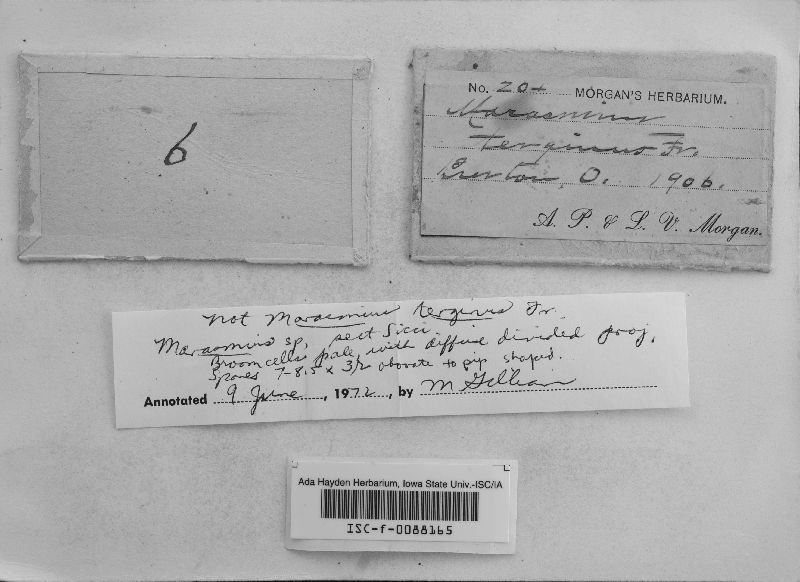 6
No. 204 MORGAN'S HERBARIUM.
Marasmius
terginus Fr.
Preston, O. 1906.
A. P. & L. V. Morgan.
not Marasmius terginus Fr.
Marasmius sp, sect Sicci
Broom cells pale, with diffuse divided proj.
Spores 7-8.5 x 3½ obovate to pip shaped.
Annotated 9 June, 1972, by M Gilliam
Ada Hayden Herbarium, Iowa State Univ.-ISC/IA
ISC-f-0088165